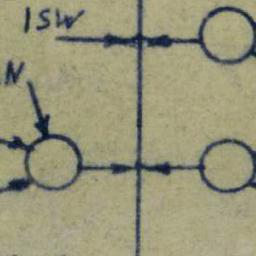 ISW
N